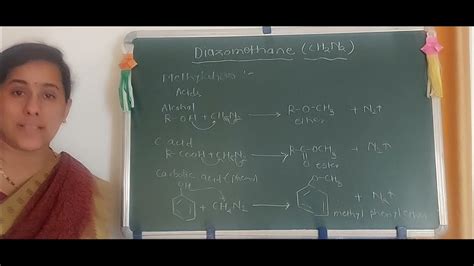 Diazomethane (CH2N2)
Methylation :-
Acids
Alcohol
R-OH + CH2N2 → R-O-CH3 + N2↑
ether
C acid
R-COOH + CH2N2 → R-C-OCH3 + N2↑
O
ester
Carbolic acid (phenol)
OH O-CH3
+ CH2N2 → + N2↑
methyl phenyl ether